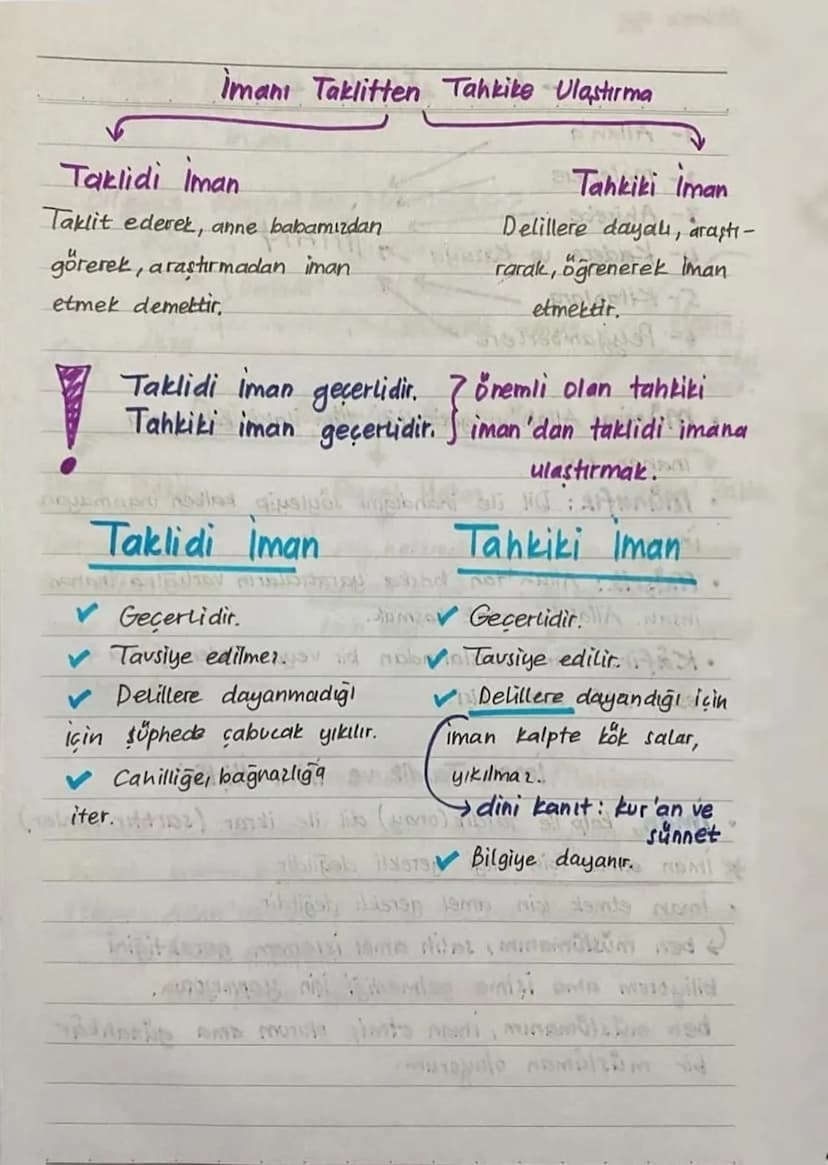 İmanı Taklitten Tahkike Ulaştırma
Taklidi İman
Taklit ederek, anne babamızdan
görerek, araştırmadan iman
etmek demektir.
Tahkiki İman
Delillere dayalı, araştı-
rarak, öğrenerek iman
etmektir.
! Taklidi iman geçerlidir.
Tahkiki iman geçerlidir.
önemli olan tahkiki
iman'dan taklidi imana
ulaştırmak.
Taklidi İman
✓ Geçerlidir.
✓ Tavsiye edilmez.
✓ Delillere dayanmadığı
için şüphede çabucak yıkılır.
✓ Cahilliğe, bağnazlığa
iter.
Tahkiki İman
✓ Geçerlidir.
✓ Tavsiye edilir.
✓ Delillere dayandığı için
iman kalpte kök salar,
yıkılmaz.
→ dini kanıt: kur'an ve
sünnet
✓ Bilgiye dayanır.